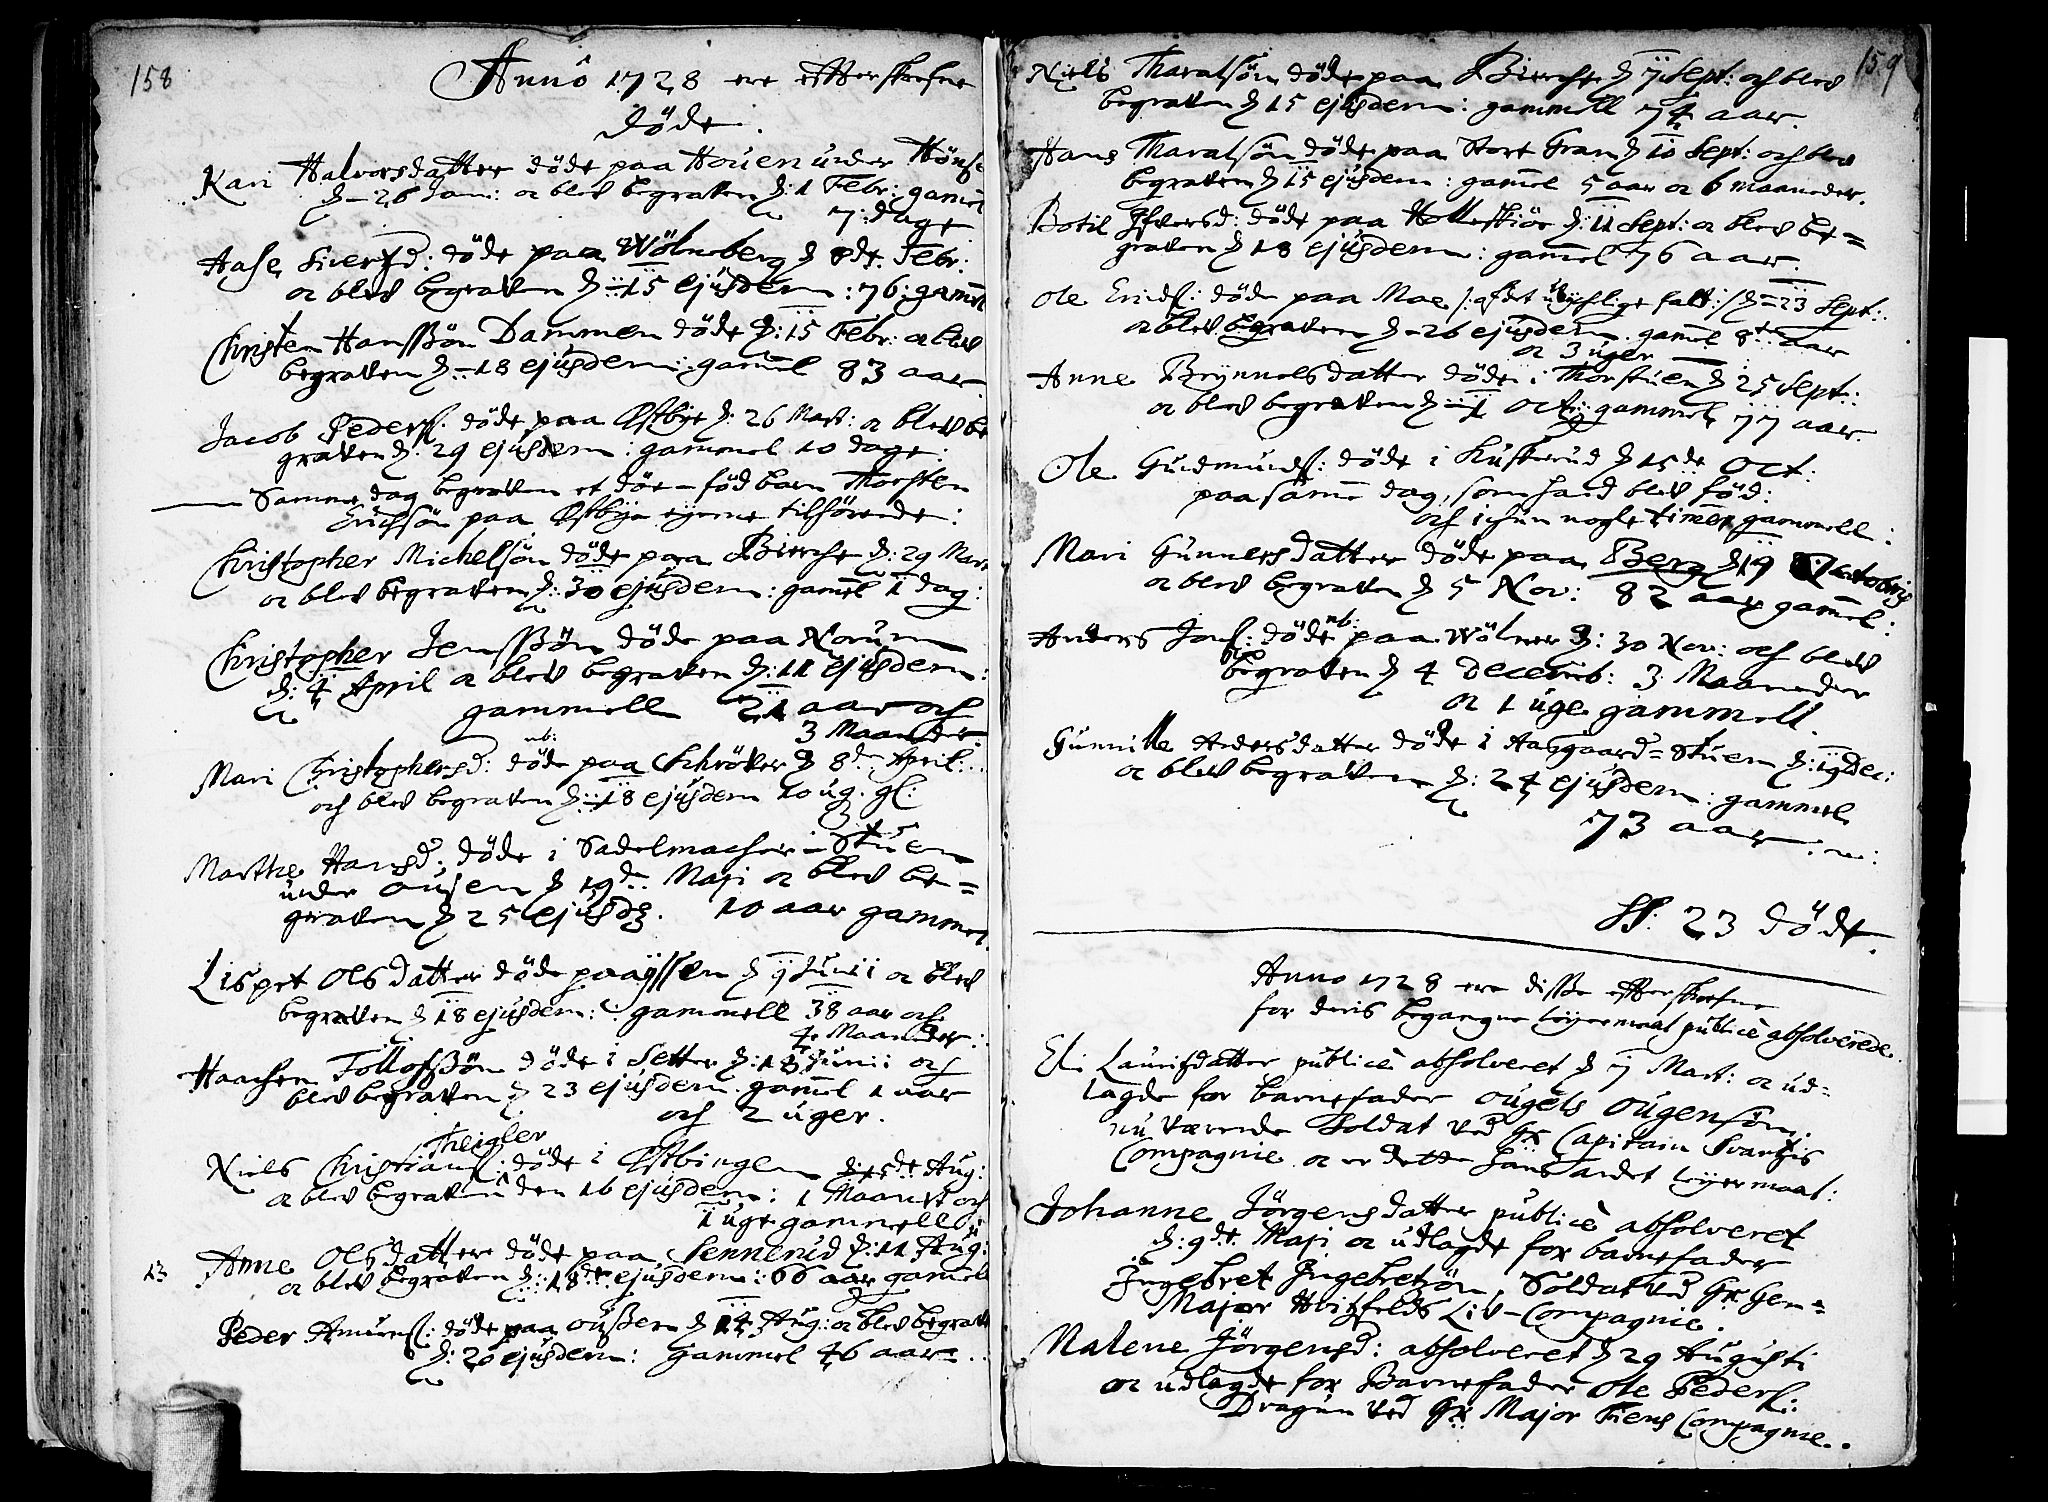 158
Anno 1728 ere effterskrefne
døde.
Kari Halvorsdatter døde paa Houen under Høns
d. 26 Jan: oc blev begraven d: 1 Febr: gamel
7: dage
Aase Siversd: døde paa Wølneberg d 8de Febr:
oc blev begraven d: 15 ejusdem: 76: gamel
Christen Hansøn Dammen døde d: 15 Febr: oc blev
begraven d: 18 ejusdem: gamel 83 aar
Jacob Peders: døde paa Østbye d. 26 Mart: oc blev be
graven d: 29 ejusdem: gammel 10 dage:
Samme dag begraven et død-fød barn Thorsten
Erichsøn paa Østbye tilhørende:
Christopher Michelsøn døde paa Bierche d: 29 Mart
oc blev begraven d: 30 ejusdem: gamel 1 dag:
Christopher Jenssøn døde paa Norum
d: 4 April oc blev begraven d: 11 ejusdem:
gammell 21 aar och
3 Maaneder:
nb:
Mari Christophersd: døde paa Schrøver d 8de April:
och blev begraven d: 18 ejusdem 10 ug. gl:
Marthe Hansd: døde i Sadelmacher-Stuen
under ousen d 19de Maji oc blev be=
graven d 25 ejusd. 10 aar gammel
Lispet Olsdatter døde paa d 9 Junii oc blev
begraven d 18 ejusdem: gammell 38 aar och
4 Maaneder:
Haachen Tollofsøn døde i Setter d: 18 Junii och
blev begraven d 23 ejusdem gamel 1 aar
och 2 uger.
Theigler
Niels Christians: døde i Østbingen d: 5de Aug:
oc blev begraven den 16 ejusdem: 1 Maanet och
1 uge gammell:
13 Anne Olsdatter døde paa Sennerud d: 11 Aug:
oc blev begraven d: 18de ejusdem: 66 aar gamel
Peder Amunds: døde paa oussen d 14 Aug: oc blev begrav
d: 20 ejusdem: gammel 46 aar
159
Niels Tharalsøn døde paa Bierche d 7 Sept: och blev
begraven d 15 ejusdem: gammell 74 aar.
Hans Tharalsøn døde paa Store Gran d 10 Sept: och blev
begraven d 15 ejusdem: gamel 5 aar oc 6 maaneder.
Botil Ifversd: døde paa Holleskiør d: 11 Sept: oc blev be=
graven d 18 ejusdem: gamel 76 aar.
Ole Erichs: døde paa Moe /: af det ulychlige fald :/ d 23 Sept:
oc blev begraven d 26 ejusdem gamel 8 aar
oc 3 uger
Anne Brynnelsdatter døde i Thorstuen d 25 Sept:
oc blev begraven d 1 Oct: gammel 77 aar.
Ole Gudmunds: døde i Kusterud d 15de Oct:
paa samme dag, som hand blev fød:
och ichun nogle timer gammell:
Mari Gunnersdatter døde paa Berg d 19 Octobris
oc blev begraven d 5 Nov: 82 aar gamel:
nb:
Anders Jons: døde paa Wølner d: 30 Nov: och blev
begraven d 4 Decemb: 3 Maaneder
oc 1 uge gammell.
Gunnille Andersdatter døde i Aasgaard=Stuen d: 19 Dec:
oc blev begraven d: 24 ejusdem: gammel
73 aar.
SS: 23 døde.
Anno 1728 ere disse effterskrefne
for deris begangne leyermaal publicè absolverede.
Eli Lauritsdatter publicè absolveret d 7 Mart: oc ud=
lagde for barnefader ougels ougensøn
nu værende Soldat ved Hr Capitain Svartzis
Compagnie oc er dette hans andet leyermaal:
Johanne Jørgensdatter publicè absolveret
d: 9de Maji oc udlagde for barnefader
Ingebret Ingebretsøn, Soldat ved Hr Gen=
Major Hvitfelds Liv-Compagnie.
Malene Jørgensd: absolveret d 29 Augusti
oc udlagde for Barnefader Ole Peders:
Dragun ved Hr Major Fiens Compagnie.